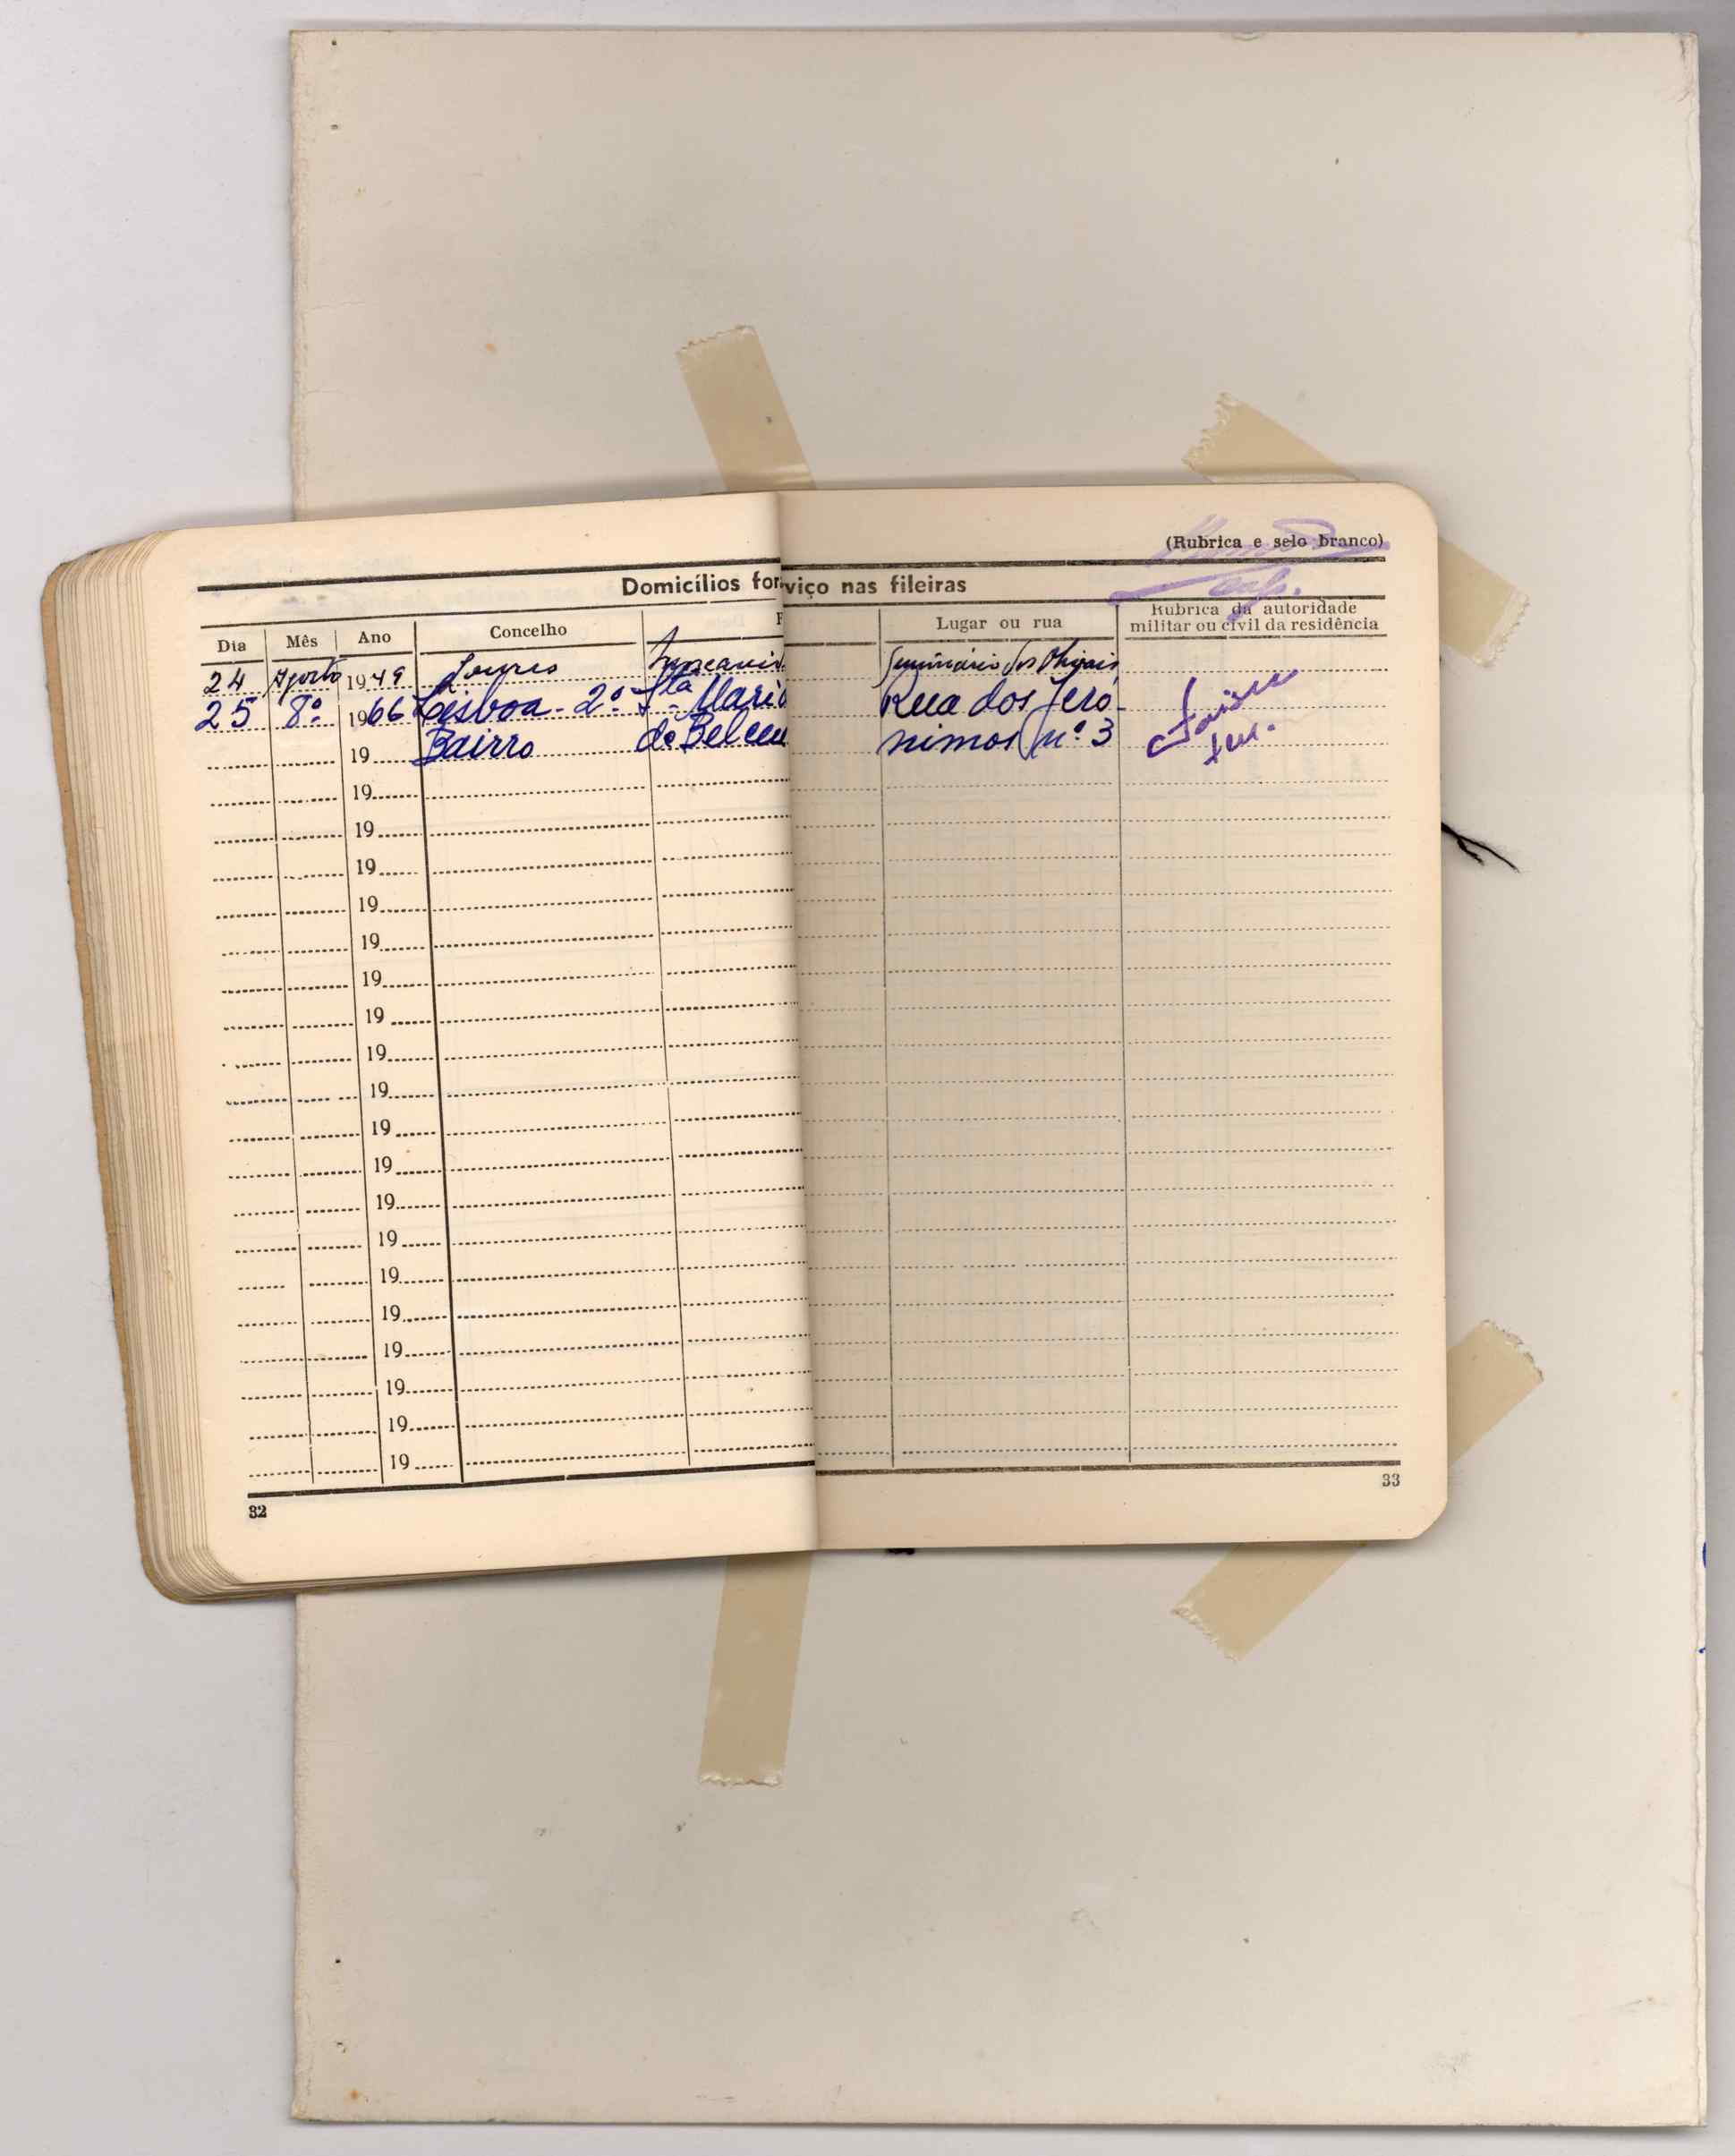 (Rubrica e selo branco)
Domicílios for viço nas fileiras
Dia Mês Ano Concelho F Lugar ou rua Rubrica da autoridade militar ou civil da residência
24 Agosto 1949 Loures Moscavid Seminário dos Olivais
25 8º 1966 Lisboa - 2.º Stª Maria Rua dos Jeró-
19 Bairro de Belem nimos nº 3
19
19
19
19
19
19
19
19
19
19
19
19
19
19
19
19
19
19
19
32 33